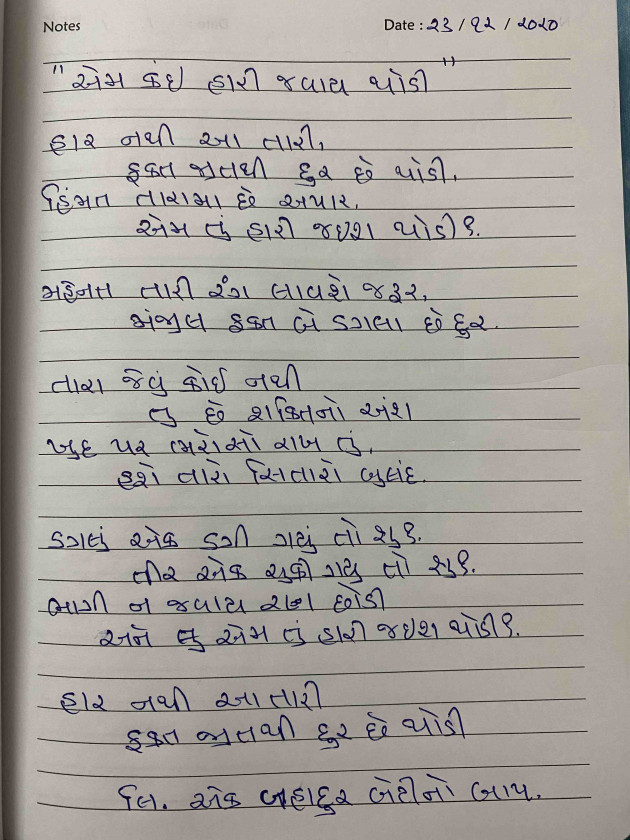 Notes
Date : ૨૩ / ૧૨ / ૨૦૨૦
"એમ કંઇ હારી જવાય થોડી"
હાર નથી આ તારી,
ફક્ત જીતથી દુર છે થોડી.
હિંમત તારામા છે અપાર.
એમ તું હારી જઇશ થોડી?.
મહેનત તારી રંગ લાવશે જરૂર,
મંજીલ ફક્ત બે ડગલા છે દુર.
તારા જેવું કોઈ નથી
તુ છે શક્તિનો અંશ
ખુદ પર ભરોસો રાખ તું,
હશે તારો સિતારો બુલંદ.
ડગલું એક ડગી ગયું તો શુ?.
તીર એક ચુકી ગયુ તો શુ?.
ભાગી ન જવાય રણ છોડી
અને તુ એમ તું હારી જઇશ થોડી?.
હાર નથી આ તારી
ફક્ત જીતથી દુર છે થોડી
લિ. એક બહાદુર બેટીનો બાપ.